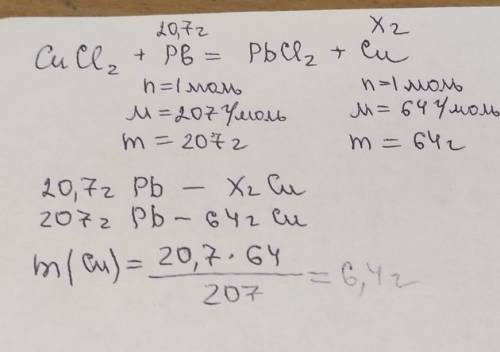 20,7г X г
CuCl₂ + Pb = PbCl₂ + Cu
n=1моль n=1моль
M=207г/моль M=64г/моль
m=207г m=64г
20,7г Pb – Xг Cu
207г Pb – 64г Cu
m(Cu) = 20,7·64 / 207 = 6,4г